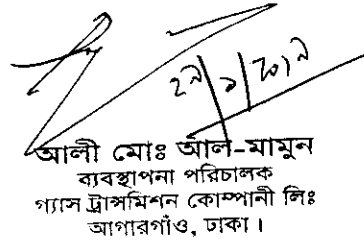 ২৯/১/২০১৯
আলী মোঃ আল-মামুন
ব্যবস্থাপনা পরিচালক
গ্যাস ট্রান্সমিশন কোম্পানী লিঃ
আগারগাঁও, ঢাকা।